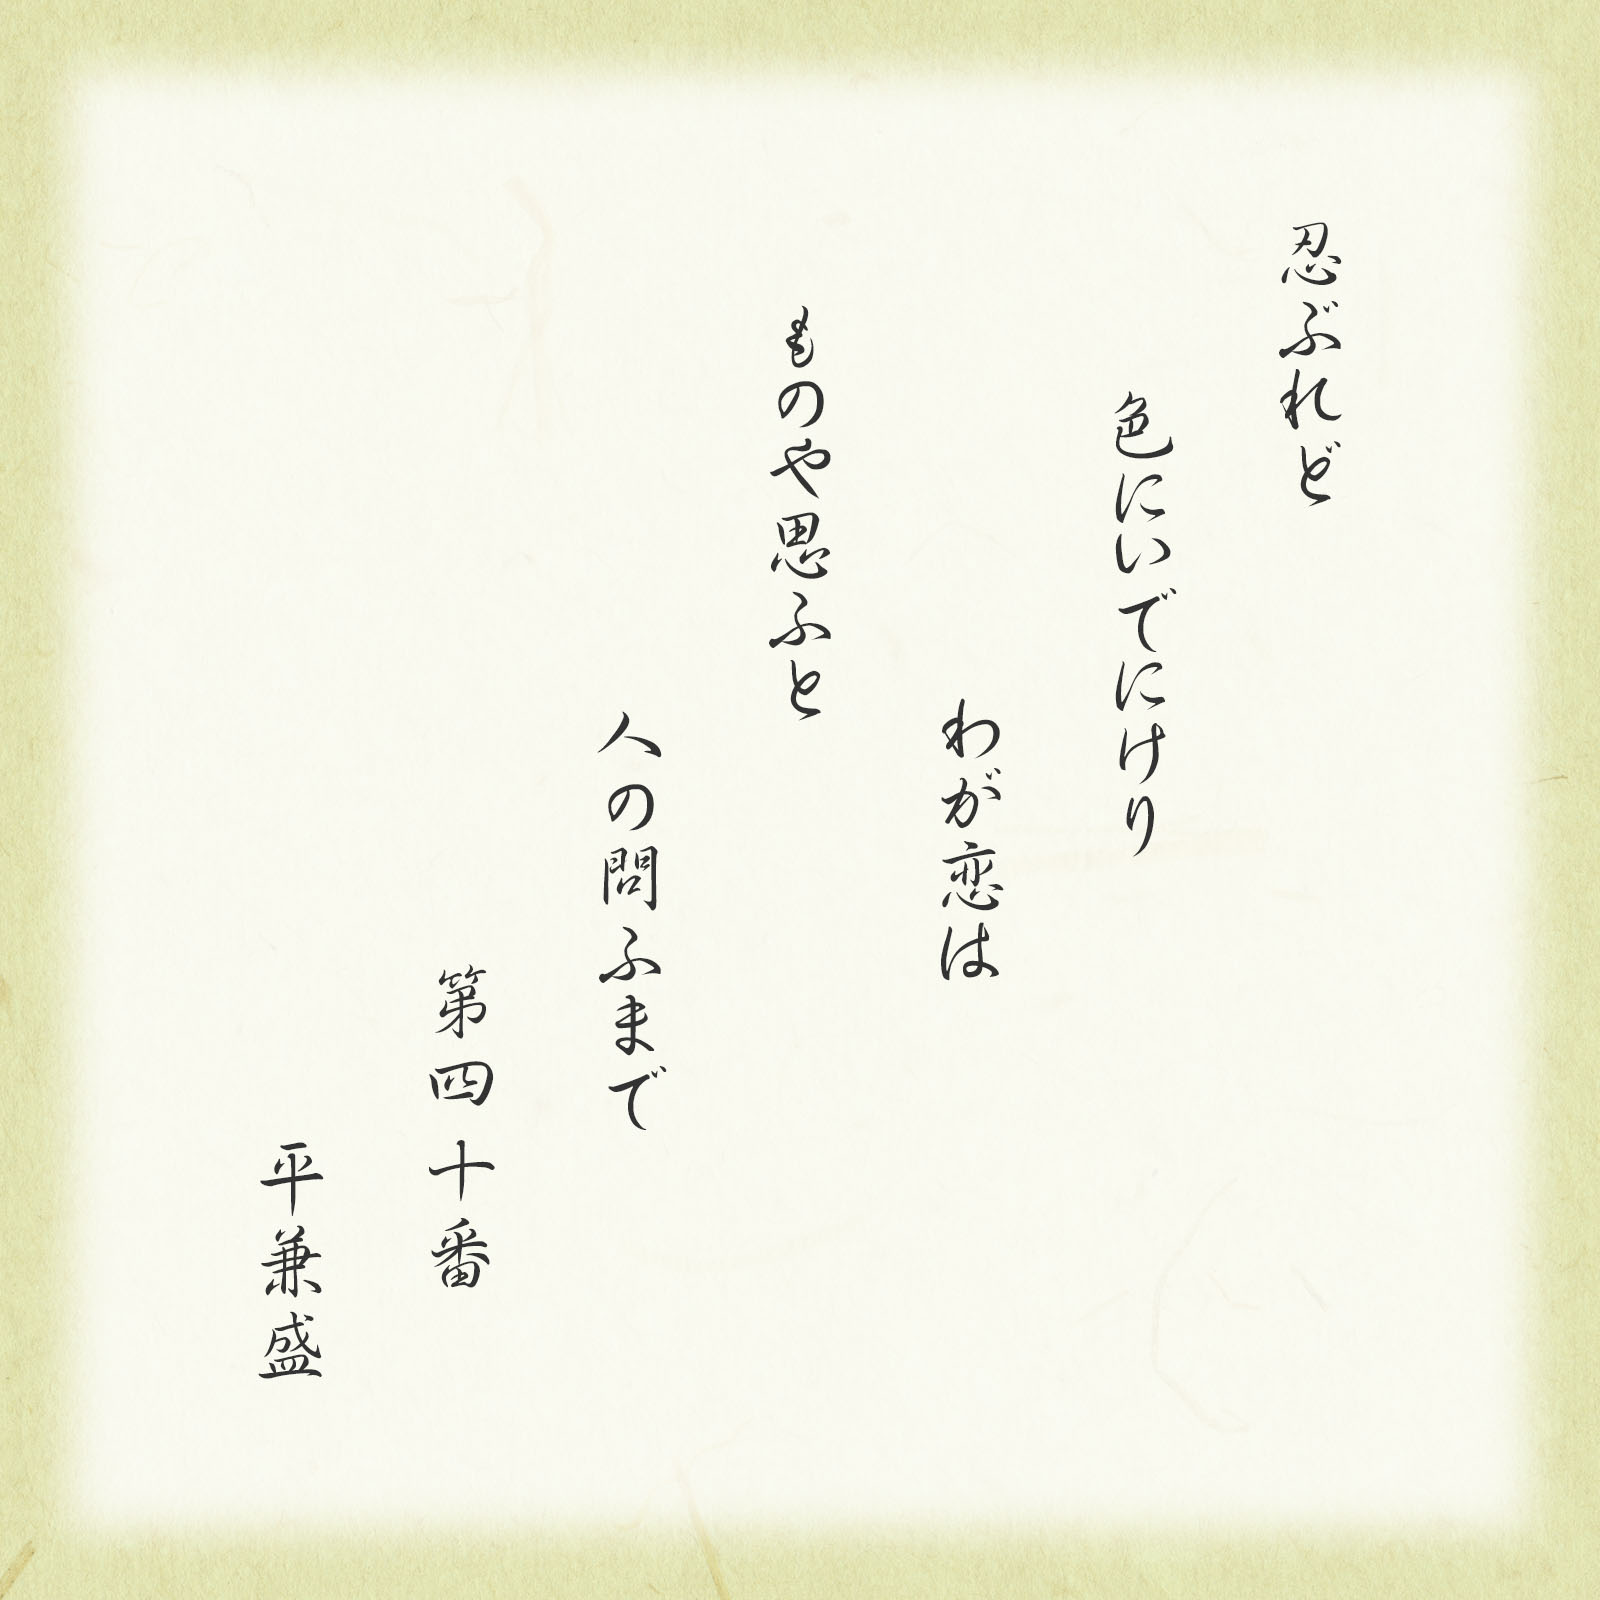 忍ぶれど
色にいでにけり
わが恋は
ものや思ふと
人の問ふまで
第四十番
平兼盛